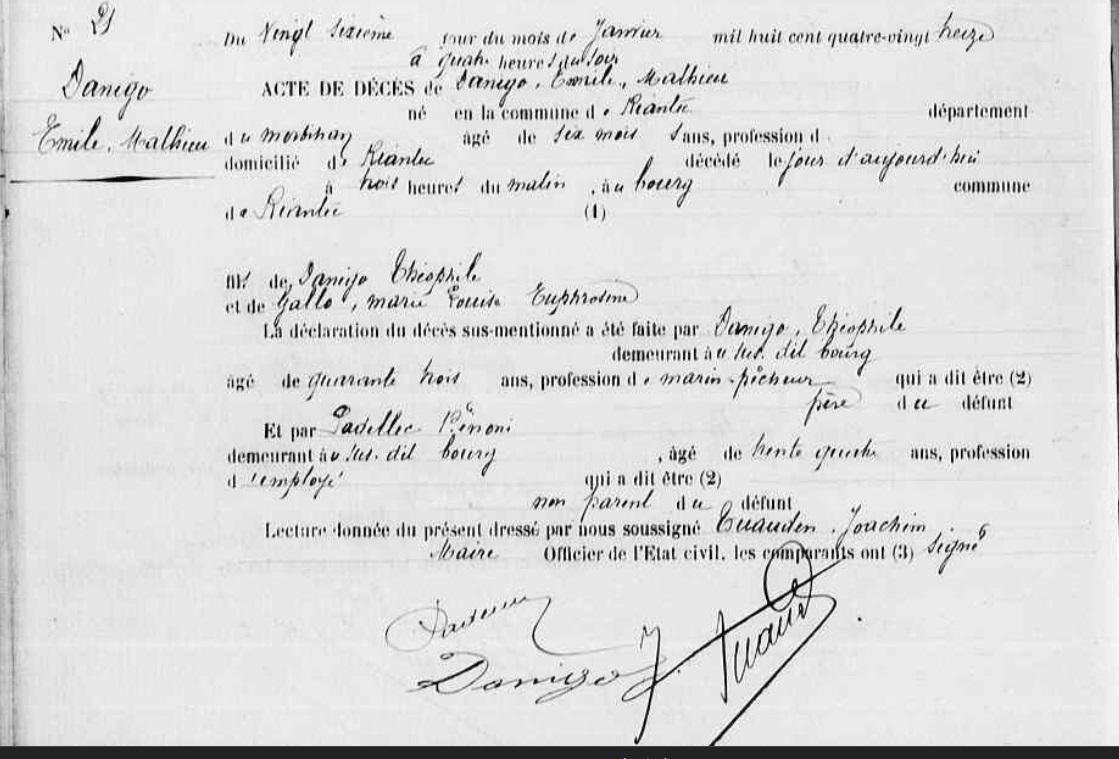 N° 21
Danigo
Emile, Mathieu
Du Vingt sixième jour du mois de Janvier mil huit cent quatre-vingt treize
à quatre heures du soir
ACTE DE DÉCÈS de Danigo, Emile, Mathieu
né en la commune de Riantec département
du Morbihan âgé de six mois ans, profession d
domicilié de Riantec décédé le jour d'aujourd'hui
à trois heures du matin, au bourg commune
de Riantec (1)
fils de Danigo Théophile
et de Gallo, marie Louise Euphrosine
La déclaration du décès sus-mentionné a été faite par Danigo, Théophile
demeurant au sus-dit bourg
âgé de quarante trois ans, profession de marin-pêcheur qui a dit être (2)
père du défunt
Et par Bénoni
demeurant au sus-dit bourg, âgé de trente quatre ans, profession
d'employé qui a dit être (2)
non parent du défunt
Lecture donnée du présent dressé par nous soussigné Joachim
Maire Officier de l'Etat civil, les comparants ont (3) signé
Danigo